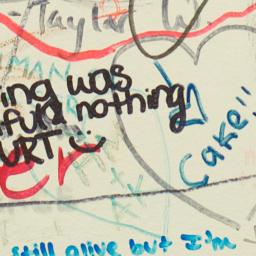 Taylor
MAN
ing was
nothing
URT
Cake!!
er
still alive but I'm